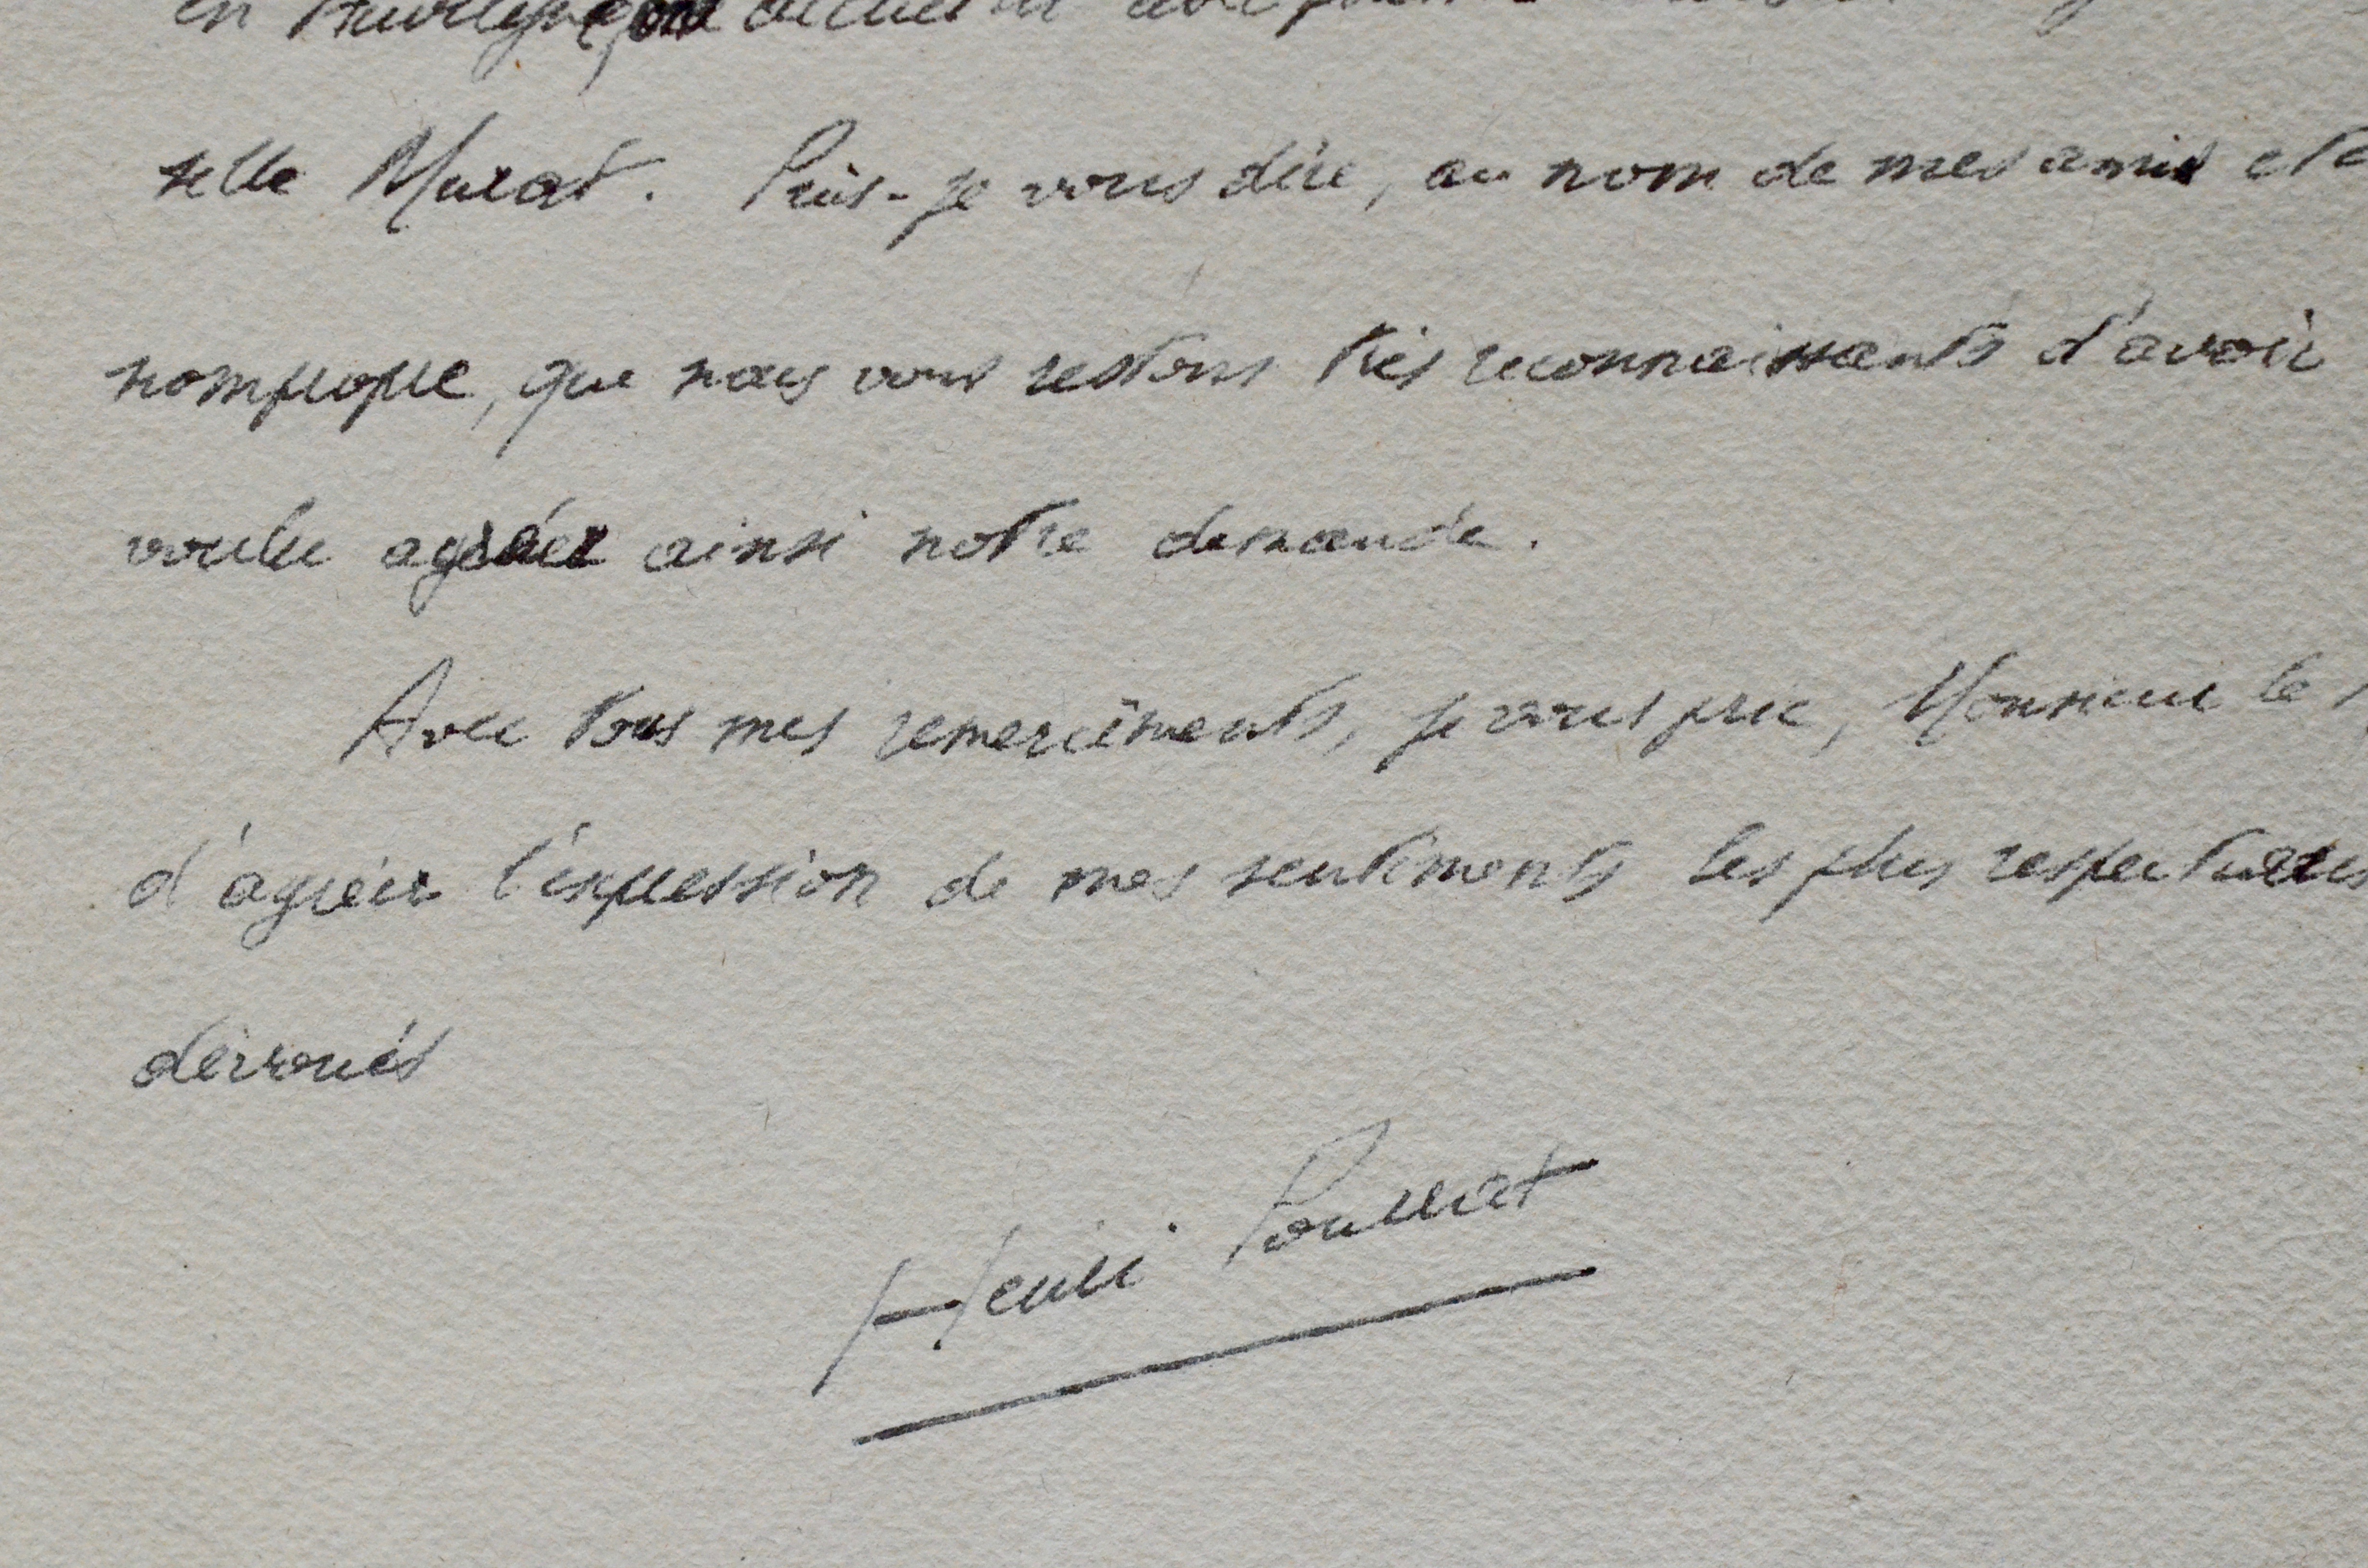 en Auvergne
selle Murat. Puis-je vous dire, au nom de mes amis et
nom propre, que nous vous restons très reconnaissants d'avoir
voulu agréer ainsi notre demande.
Avec tous mes remerciements, je vous prie, Monsieur le
d'agréer l'expression de mes sentiments les plus respectueus
dévoués
Henri Pourrat